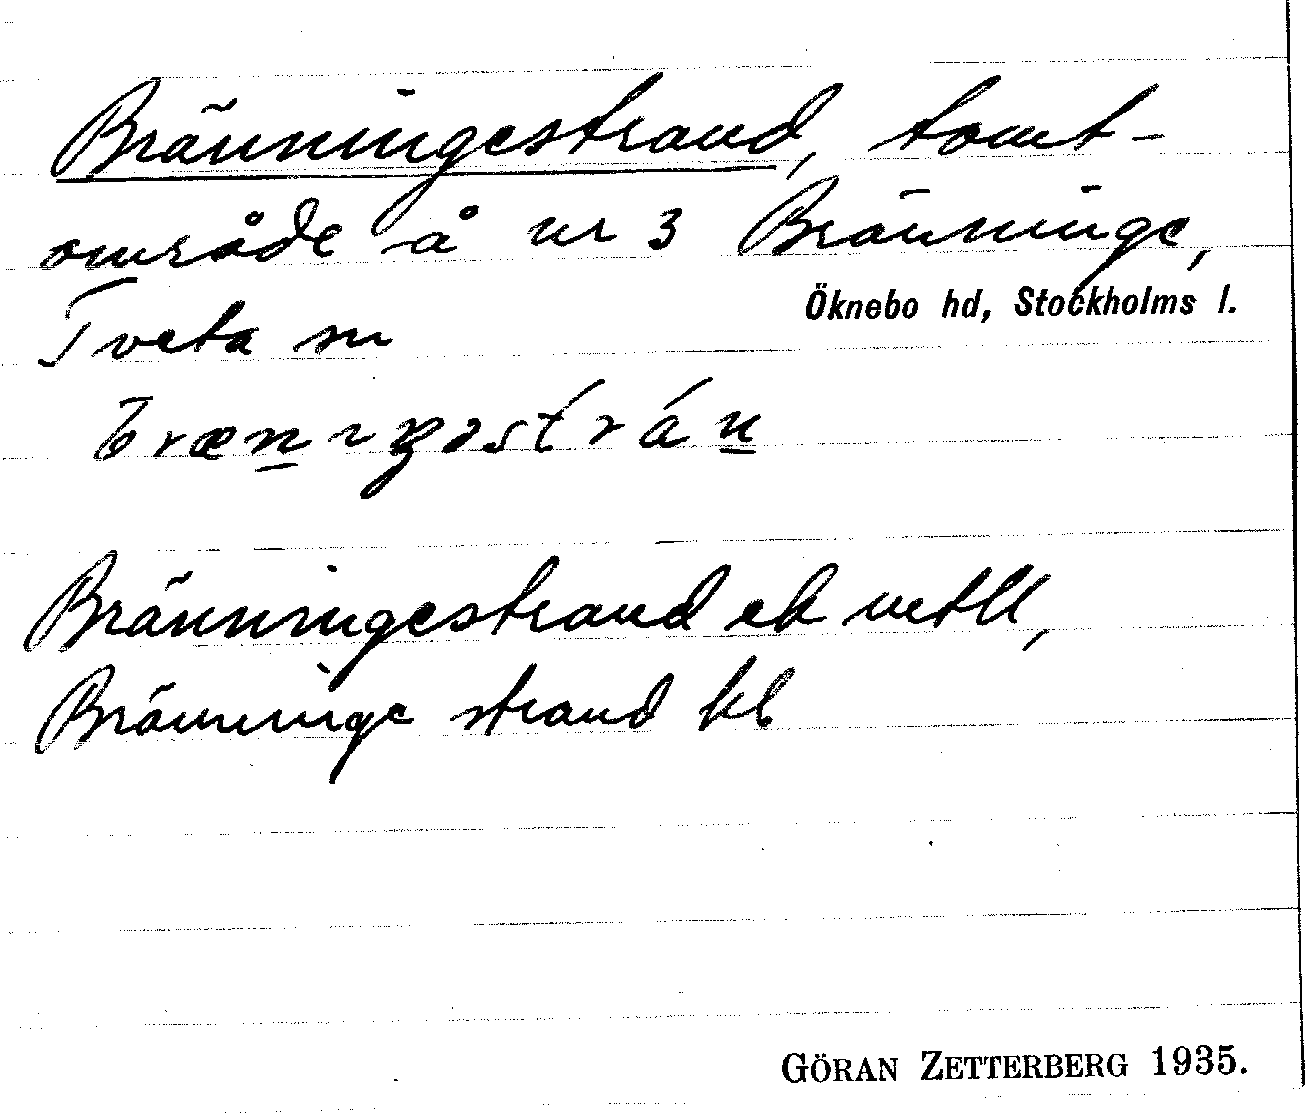 Bränningestrand, tomt-
område å nr 3 Bränninge,
Öknebo hd, Stockholms l.
Tveta sn
Bränningestrand ek
Bränninge strand kl
GÖRAN ZETTERBERG 1935.